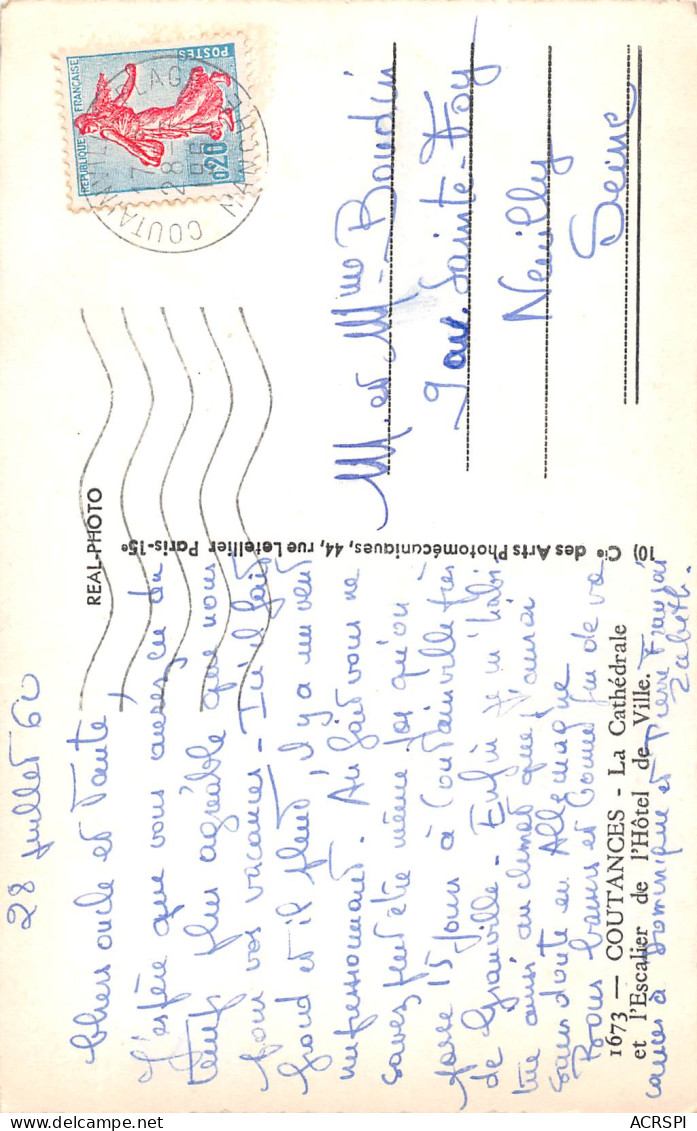 28 juillet 60
Chers oncle et Tante
J'espère que vous aurez eu du
temps plus agréable que nous
pour vos vacances - Ici il fait
froid et il pleut, il y a un vent
impressionnant. Au fait vous ne
savez peut être même pas qu'on
passe 15 jours à Coutainville près
de Granville. Enfin je m'habi
tue ainsi au climat que j'aurai
sans doute en Allemagne
Bons baisers et bonne fin de va
cances à Dominique et Pierre François
Zabeth.
1673 — COUTANCES - La Cathédrale
et l'Escalier de l'Hôtel de Ville.
REAL-PHOTO
10) Cie des Arts Photomécaniques, 44, rue Letellier Paris-15e
RÉPUBLIQUE FRANÇAISE
POSTES
0,20
COUTAINVILLE PLAGE
MANCHE
17
28
M et Mme Boudin
9 av. Sainte-Foy
Neuilly
Seine
ACRSPI